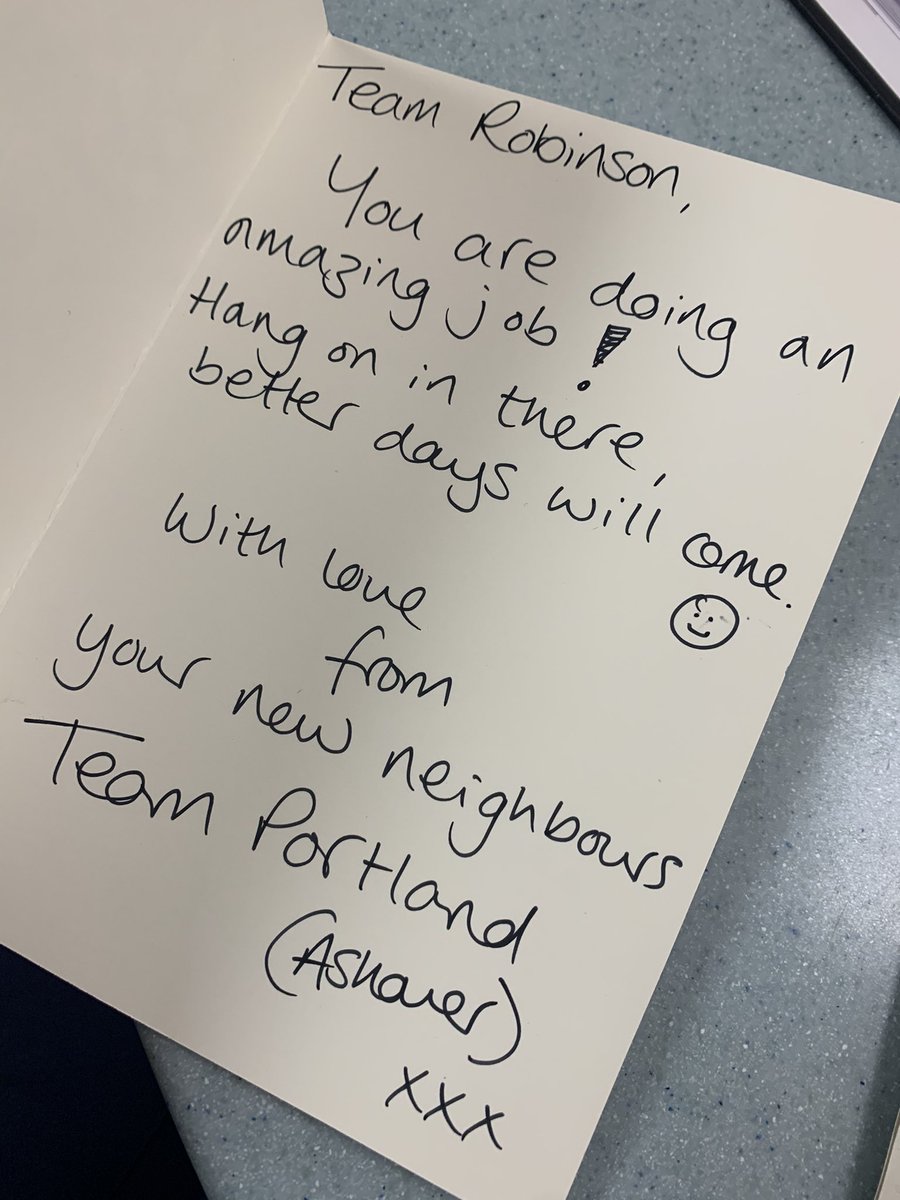 Team Robinson,
You are doing an
amazing job!
Hang on in there,
better days will come.
With love
from
your new neighbours
Team Portland
(Ashover)
xxx